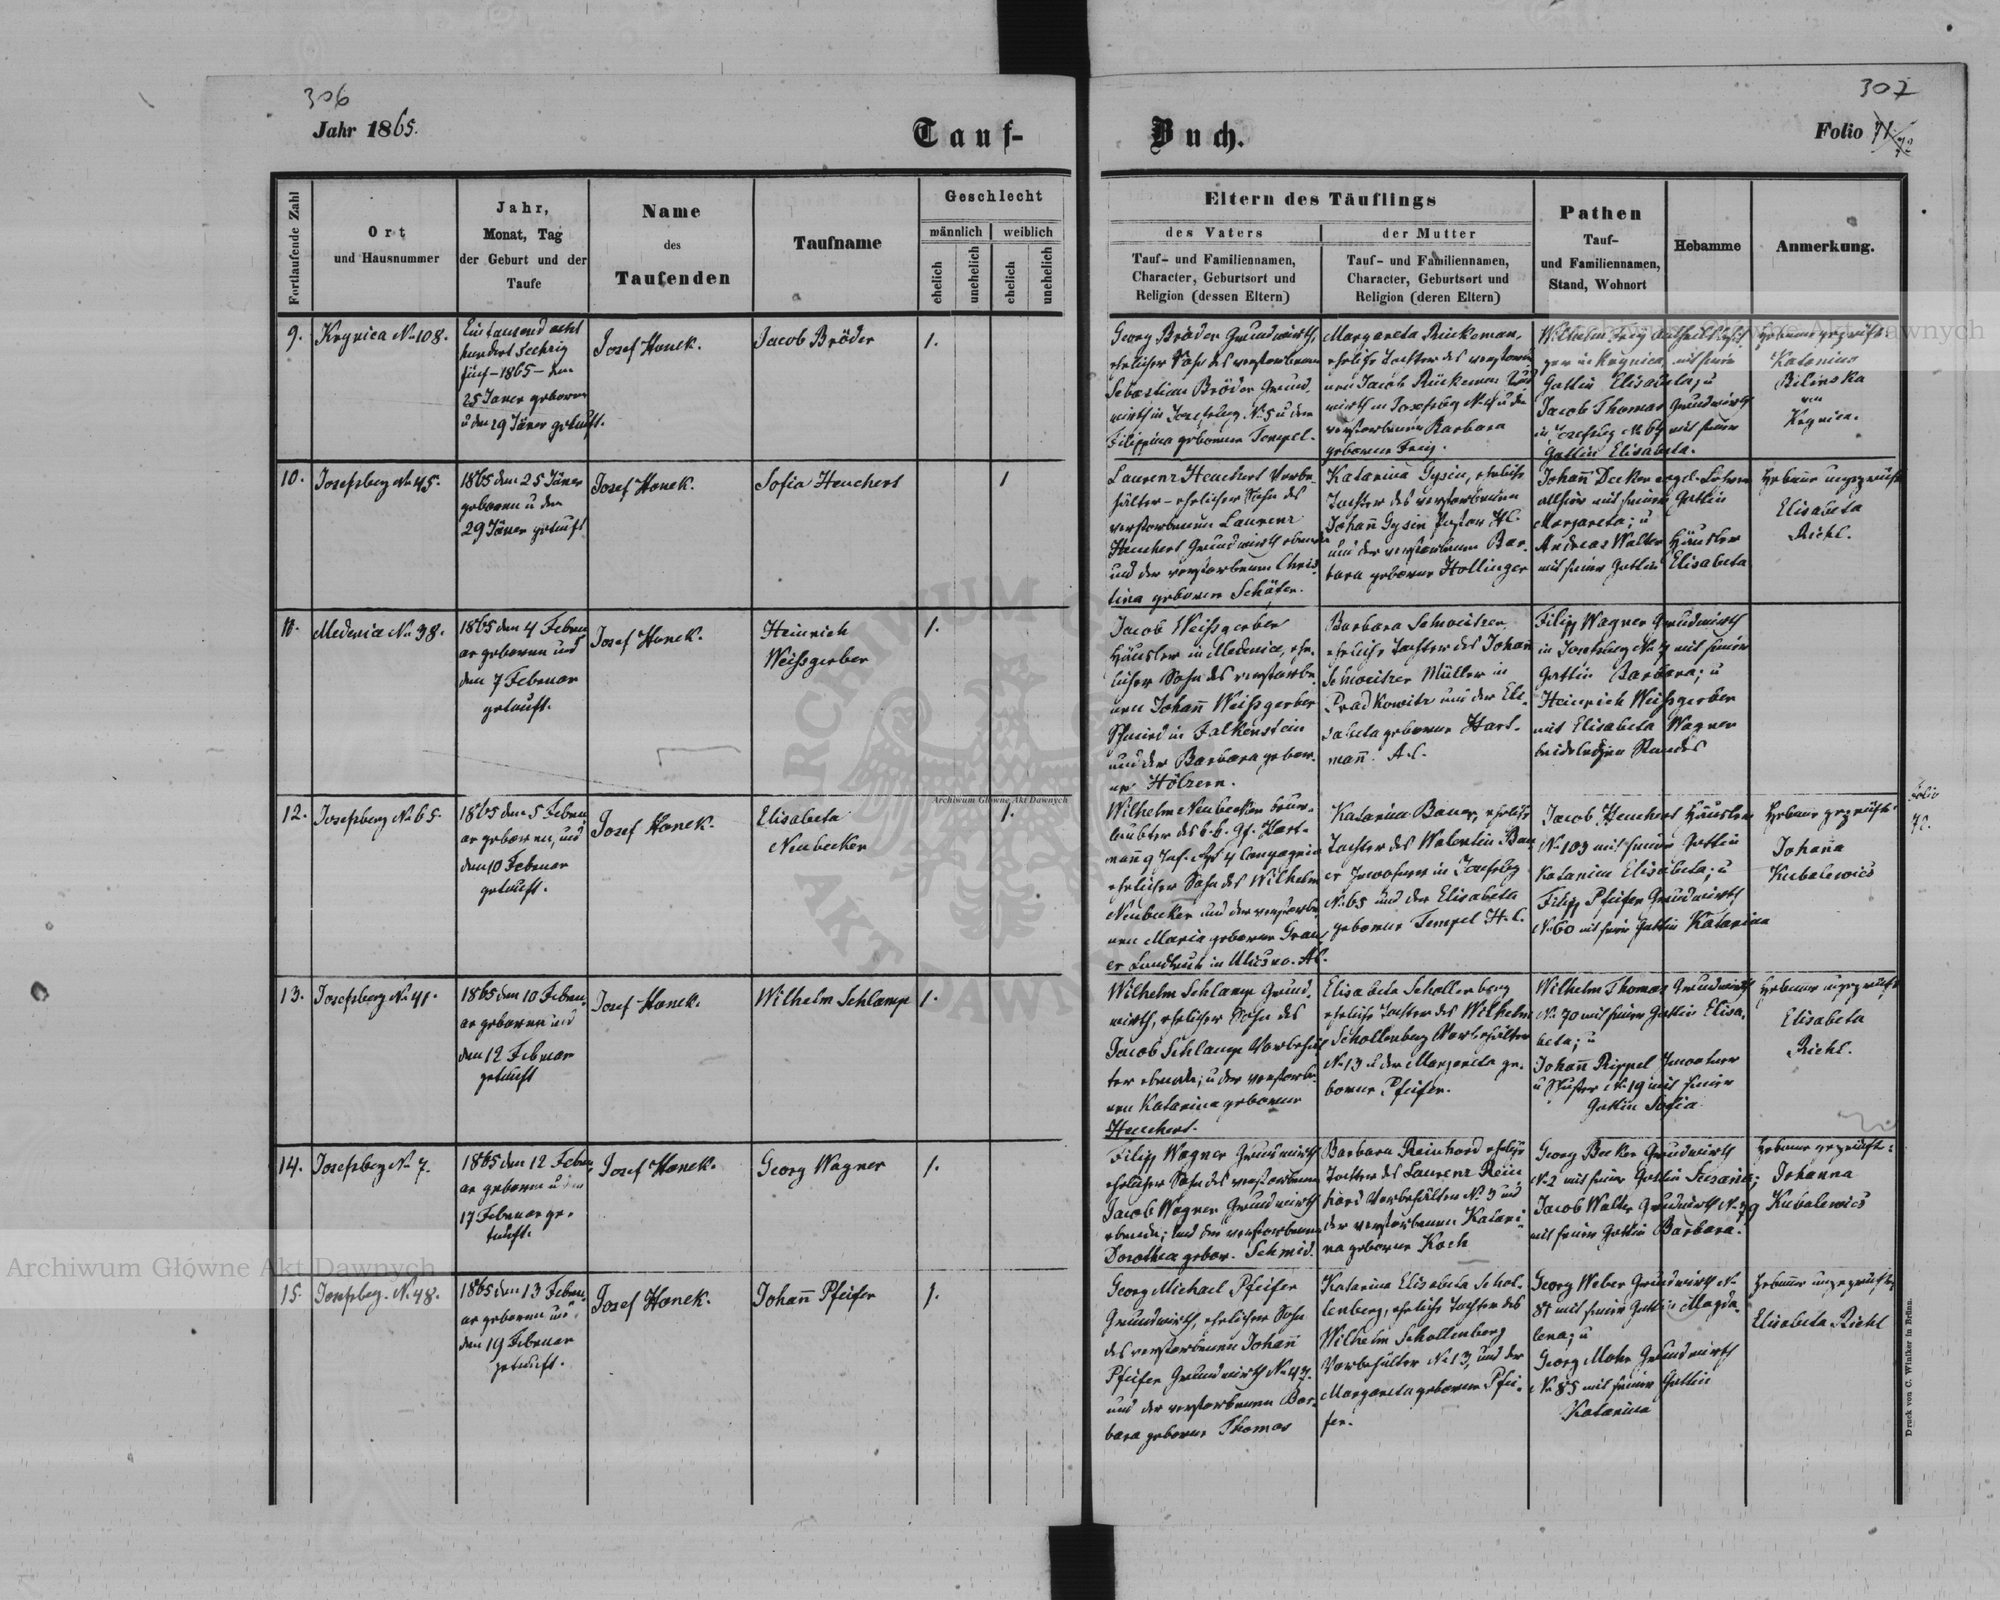 306
307
Jahr 1865.
Tauf-
Buch.
Folio 71.
72
Fortlaufende Zahl
Ort
und Hausnummer
Jahr,
Monat, Tag
der Geburt und der
Taufe
Name
des
Taufenden
Taufname
Geschlecht
männlich
weiblich
ehelich
unehelich
ehelich
unehelich
Eltern des Täuflings
des Vaters
Tauf- und Familiennamen,
Character, Geburtsort und
Religion (dessen Eltern)
der Mutter
Tauf- und Familiennamen,
Character, Geburtsort und
Religion (deren Eltern)
Pathen
Tauf-
und Familiennamen,
Stand, Wohnort
Hebamme
Anmerkung.
9.
Krynica No 108.
Ein tausend acht
hundert Sechzig
fünf - 1865 - den
25 Jäner geboren
u den 29 Jäner getauft.
Josef Hanek.
Jacob Bröder
1.
Georg Bröder Grundwirth,
ehelicher Sohn des verstorbenen
Sebastian Bröder Grund-
wirth in Josefsberg No 5 u der
Filippina geborene Tempel.
Margareta Rückeman,
eheliche Tochter des verstorbe-
nen Jacob Rückeman Grund
wirth in Josefsberg No 4 u der
verstorbenen Barbara
geborene Frey.
Wilhelm Frey
in Krynica, mit seiner
Gattin Elisabeta; u
Jacob Thomas Grundwirth
in Josefsberg No 64 mit seiner
Gattin Elisabeta.
Hebame geprüft
Katarina
Bilinska
von
Krynica.
10.
Josefsberg No 45.
1865 den 25 Jäner
geboren u den
29 Jäner getauft
Josef Hanek.
Sofia Heuchert
1
Laurenz Heuchert Vorbe-
hälter - ehelicher Sohn des
verstorbenen Laurenz
Heuchert Grundwirth ebenda
und der verstorbenen Chris-
tina geborene Schäfer.
Katarina Gysin, eheliche
Tochter des verstorbenen
Johañ Gysin Pastor H.C.
und der verstorbenen Bar-
bara geborene Hollinger
Johañ Decker evgel. Lehrer
allhier mit seiner Gattin
Margareta; u
Andreas Walter Häusler
mit seiner Gattin Elisabeta
Hebame ungeprüft
Elisabeta
Riehl.
11.
Medenica No 38.
1865 den 4 Febru-
ar geboren und
den 7 Februar
getauft.
Josef Hanek.
Heinrich
Weißgerber
1.
Jacob Weißgerber
Häusler in Medenica, ehe-
licher Sohn des verstorbe-
nen Johañ Weißgerber
Schmied in Falkenstein
und der Barbara gebor-
ne Hölzern.
Barbara Schweitzer,
eheliche Tochter des Johañ
Schweitzer Müller in
Pradkowitz und der Eli-
sabeta geborene Hart-
mañ. A.C.
Filipp Wagner Grundwirth
in Josefsberg No 7 mit seiner
Gattin Barbara; u
Heinrich Weißgerber
mit Elisabeta Wagner
beide ledigen Standes
12.
Josefsberg No 65.
1865 den 5 Febru-
ar geboren, und
den 10 Februar
getauft.
Josef Hanek.
Elisabeta
Neubecker
1.
Wilhelm Neubecker beur-
laubter des k.k. Gf. Hart-
mañ 9 Inf. Rgt 4 Compagnie
ehelicher Sohn des Wilhelm
Neubecker und der verstorbe-
nen Maria geborene Grau-
er Landleute in Ugartsberg. A.C.
Katarina Bauer, eheliche
Tochter des Valentin Bau-
er Inwohner in Josefsberg
No 65 und der Elisabeta
geborene Tempel H.C.
Jacob Heuchert Häusler
No 103 mit seiner Gattin
Katarina Elisabeta; u
Filipp Pfeifer Grundwirth
No 60 mit seiner Gattin Katarina
Hebame geprüft.
Johana
Kubalewics
Folio
72.
13.
Josefsberg No 41.
1865 den 10 Febru-
ar geboren und
den 12 Februar
getauft
Josef Hanek.
Wilhelm Schlamp
1.
Wilhelm Schlamp Grund-
wirth, ehelicher Sohn des
Jacob Schlamp Vorbehäl-
ter ebenda; u der verstorbe-
nen Katarina geborene
Heuchert.
Elisabeta Schollenberg
eheliche Tochter des Wilhelm
Schollenberg Vorbehälter
No 13 u der Margareta ge-
borene Pfeifer.
Wilhelm Thomas Grundwirth
No 70 mit seiner Gattin Elisa-
beta; u
Johañ Rippel Inwohner
u Schuster No 19 mit seiner
Gattin Sofia
Hebame ungeprüft
Elisabeta
Riehl.
14.
Josefsberg No 7.
1865 den 12 Febru-
ar geboren u den
17 Februar ge-
tauft.
Josef Hanek.
Georg Wagner
1.
Filipp Wagner Grundwirth
ehelicher Sohn des verstorbenen
Jacob Wagner Grundwirth
ebenda; und der verstorbenen
Dorothea gebor. Schmid.
Barbara Reinhard eheliche
Tochter des Laurenz Rein
hard Vorbehälter No 3 und
der verstorbenen Katari-
na geborene Koch
Georg Becker Grundwirth
No 2 mit seiner Gattin Susana;
Jacob Walter Grundwirth No 79
mit seiner Gattin Barbara.
Hebame geprüft:
Johanna
Kubalewics
15.
Josefsberg. No 48.
1865 den 13 Febru-
ar geboren und
den 19 Februar
getauft.
Josef Hanek.
Johañ Pfeifer
1.
Georg Michael Pfeifer
Grundwirth ehelicher Sohn
des verstorbenen Johañ
Pfeifer Grundwirth No 47.
und der verstorbenen Bar-
bara geborene Thomas
Katarina Elisabeta Schol-
lenberg, eheliche Tochter des
Wilhelm Schollenberg
Vorbehälter No 13, und der
Margareta geborene Pfei-
fer.
Georg Weber Grundwirth No
81 mit seiner Gattin Magda-
lena; u
Georg Mohr Grundwirth
No 85 mit seiner Gattin
Katarina
Hebame ungeprüft
Elisabeta Riehl
Druck von C. Winiker in Brünn.
Archiwum Główne Akt Dawnych
Archiwum Główne Akt Dawnych
Archiwum Główne Akt Dawnych
ARCHIWUM
AKT DAWN